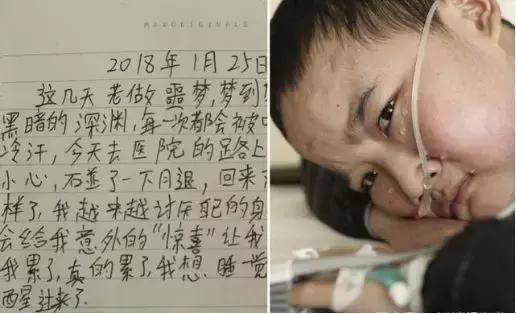 2018年1月25日
这几天老做噩梦,梦到
黑暗的深渊,每一次都会被
冷汗,今天去医院的路上
小心,碰了一下腿,回来
样了,我越来越讨厌自己的身
会给我意外的“惊喜”让我
我累了,真的累了,我想睡一觉
醒过来了